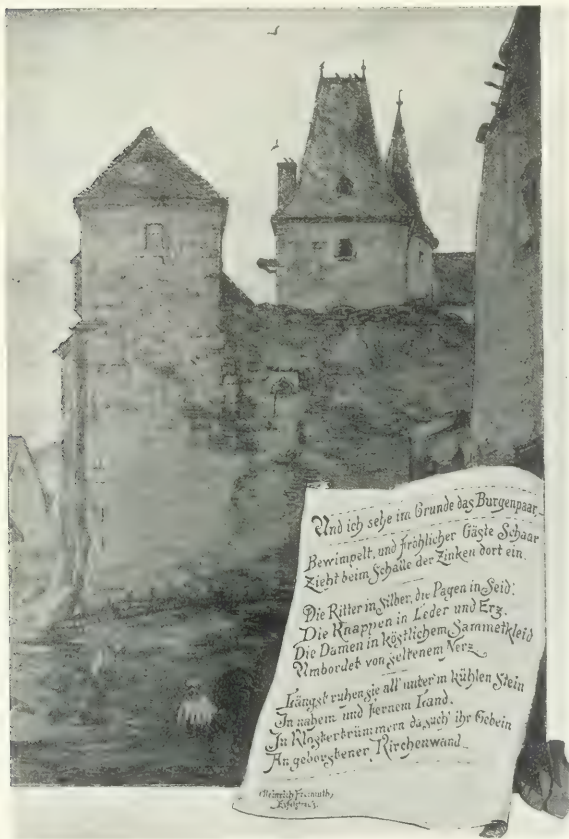 Und ich sehe im Grunde das Burgenpaar,
Bewimpelt, und fröhlicher Gäste Schaar
Zieht beim Schalle der Zinken dort ein.
Die Ritter in Silber, die Pagen in Seid',
Die Knappen in Leder und Erz.
Die Damen in köstlichem Sammetkleid
Umbordet von seltenem Nerz
Längst ruhen sie all' unter'm kühlen Stein
In nahem und fernem Land.
In Klostertrümmern da such' ihr Gebein
An geborstener Kirchenwand
Heinrich Freimuth,